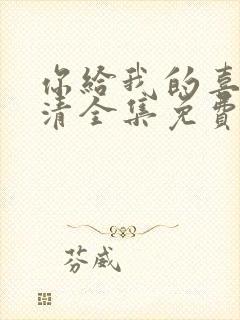 你給我的喜
清全集免費
芬威